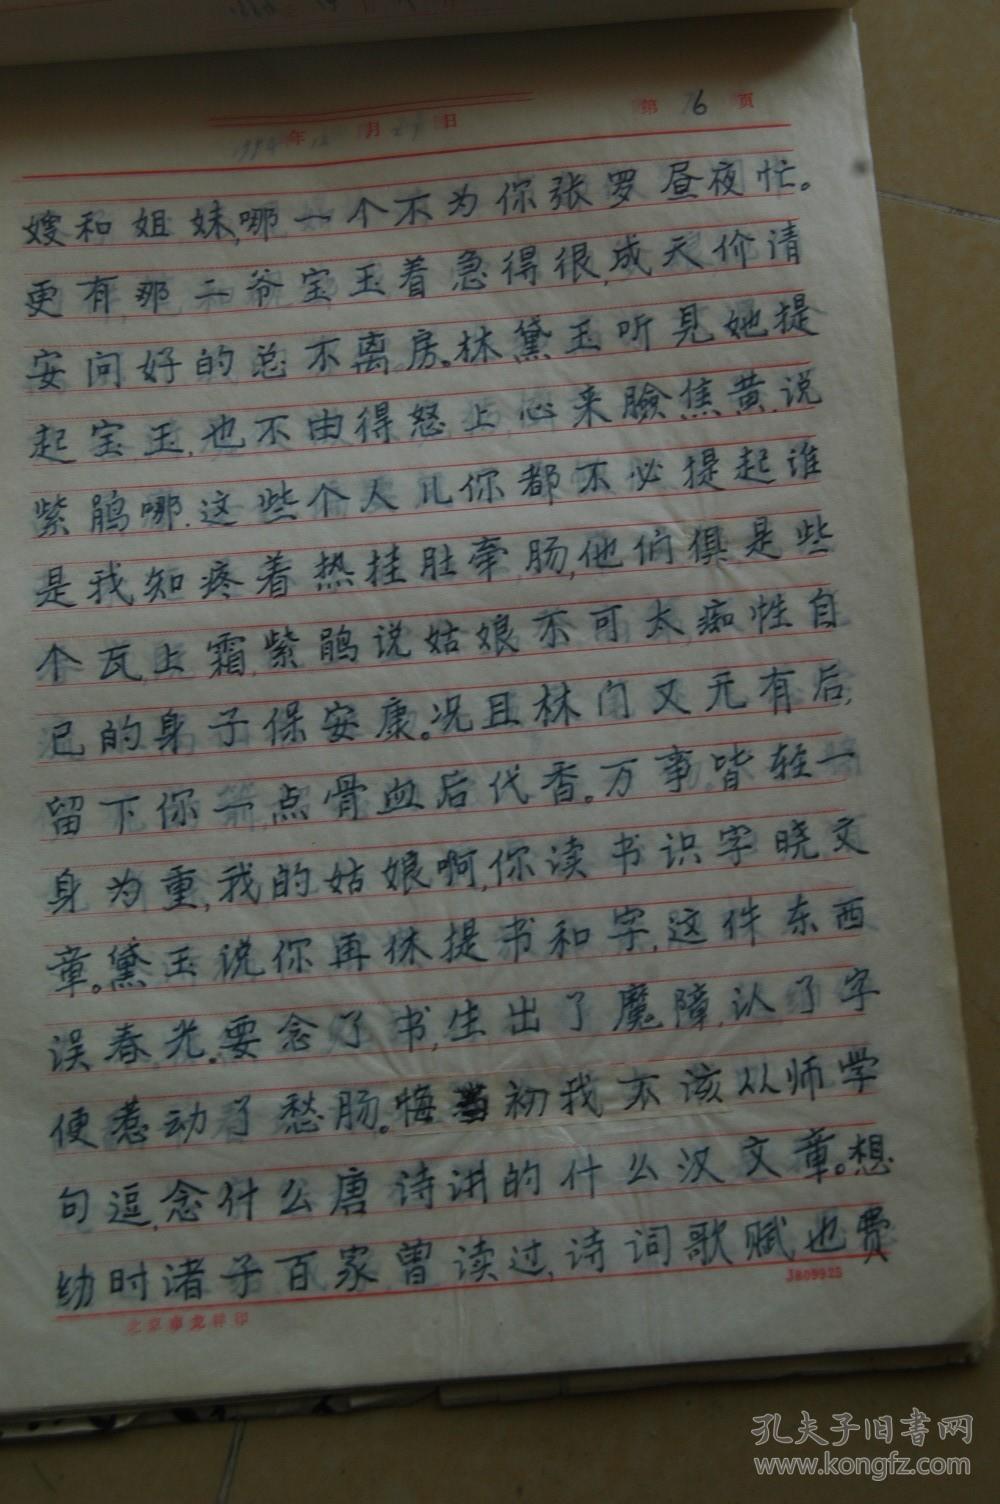 年 月 日 第 16 页
嫂和姐妹,哪一个不为你张罗昼夜忙。
更有那二爷宝玉着急得很,成天价请
安问好的总不离房。林黛玉听见她提
起宝玉,也不由得怒上心来脸焦黄,说
紫鹃哪.这些个人儿你都不必提起谁
是我知疼着热挂肚牵肠,他们俱是些
个瓦上霜,紫鹃说姑娘不可太痴性自
己的身子保安康。况且林门又无有后,
留下你一点骨血后代香。万事皆轻一
身为重,我的姑娘啊,你读书识字晓文
章。黛玉说你再休提书和字,这件东西
误春光.要念了书,生出了魔障,认了字
便惹动了愁肠。悔当初我不该从师学
句逗,念什么唐诗讲的什么汉文章。想
幼时诸子百家曾读过,诗词歌赋也费
J809925
孔夫子旧书网
www.kongfz.com